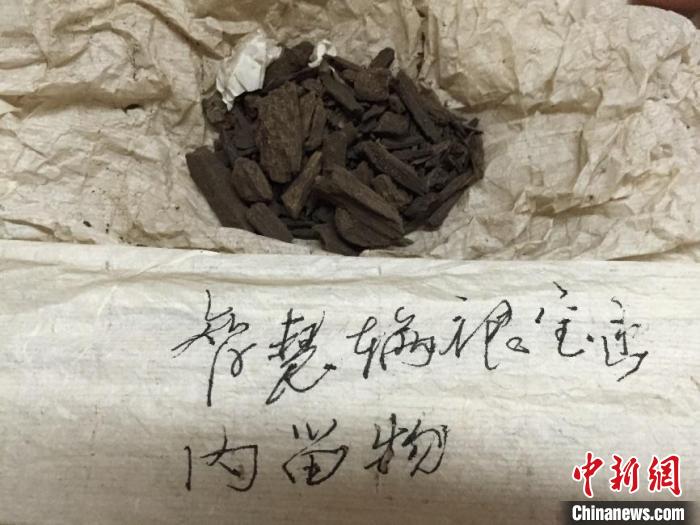 智慧轮银宝函
内留物
中新网
Chinanews.com